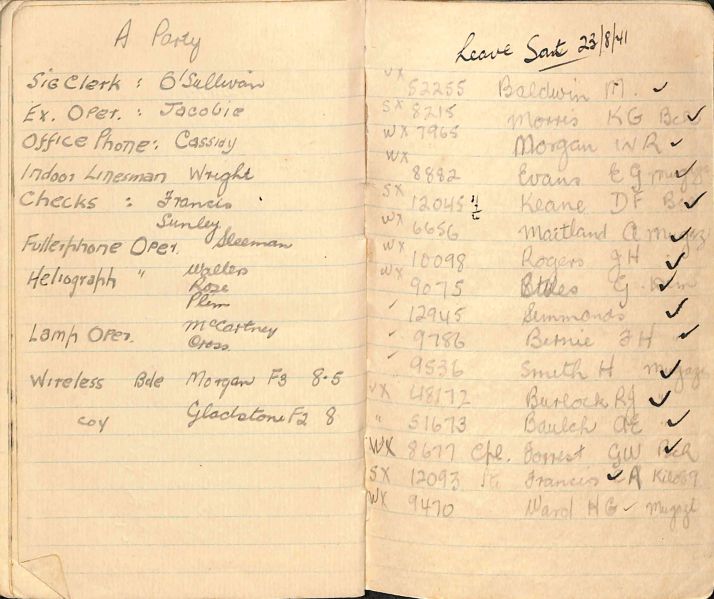 A Party
Sig Clerk : O'Sullivan
Ex. Oper. : Jacobie
Office Phone : Cassidy
Indoor Linesman Wright
Checks : Francis
Sunley
Fullerphone Oper. Sleeman
Heliograph " Walters
Rose
Plim
Lamp Oper. McCartney
Cross
Wireless Bde Morgan F3 8.5
Coy Gladstone F2 8
Leave Sat 23/8/41
VX 52255 Baldwin M. ✓
SX 8215 Morris KG ✓
WX 7965 Morgan WR ✓
WX 8882 Evans EG ✓
SX 12045 Keane DF ✓
WX 6656 Maitland A ✓
WX 10098 Rogers JH ✓
WX 9075 G ✓
" 12945 Simmonds ✓
" 9786 Bernie FH ✓
" 9536 Smith H ✓
VX 48172 Burlock RJ ✓
" 51673 Baulch AE ✓
WX 8677 Cpl. Forrest GW ✓
SX 12093 Francis ✓ A
WX 9470 Ward HG ✓